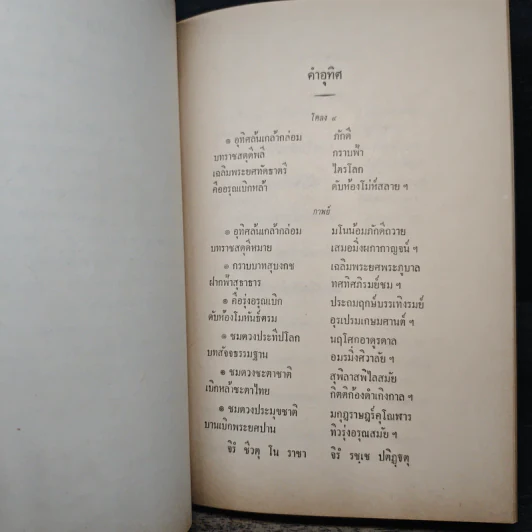 คำอุทิศ
โคลง ๔
๑ อุทิศล้นเกล้ากล่อม ภักดี
บทราชสดุดีพลี กราบฟ้า
เฉลิมพระยศทัดธาตรี ไตรโลก
คืออรุณเบิกหล้า ดับห้องโมห์สลาย ฯ
กาพย์
๑ อุทิศล้นเกล้ากล่อม มโนน้อมภักดีถวาย
บทราชสดุดีหมาย เสมอมิ่งผกากาญจน์ ฯ
๑ กราบบาทสุบงกช เฉลิมพระยศพระภูบาล
ฝากฟ้าสุธาธาร ทศทิศภิรมย์ชม ฯ
๑ คือรุ่งอรุณเบิก ประถมฤกษ์บรรเทิงรมย์
ดับห้องโมหันธ์ตรม อุรเปรมเกษมศานต์ ฯ
๑ ชมดวงประทีปโลก นฤโศกอาดูรดาล
บทสัจจธรรมฐาน อมรมิ่งศิวาลัย ฯ
๑ ชมดวงชะตาชาติ สุพิลาสพิไลสมัย
เบิกหล้าชะตาไทย กิตติก้องดำเกิงกาล ฯ
๑ ชมดวงประมุขชาติ มกุฎราษฎร์คุโณฬาร
บานเบิกพระยศปาน ทิวรุ่งอรุณสมัย ฯ
จิรํ ชีวตุ โน ราชา จิรํ รชฺเช ปติฏฺฐตุ